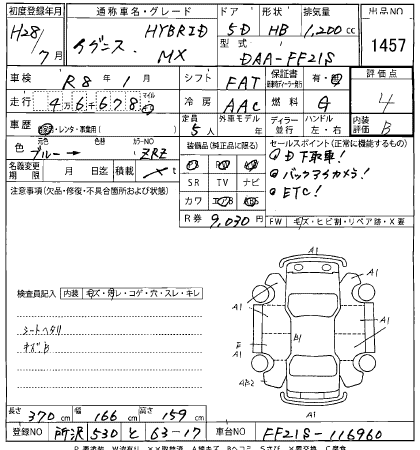 初度登録年月 通称車名・グレード ドア 形状 排気量 出品NO
H28/7月 イグニス HYBRID MX 5D HB 1,200cc 1457
型式 DAA-FF21S
車検 R8年1月 シフト FAT 保証書 有・無 評価点 4
走行 4万6千678 マイル 冷房 AAC 燃料 G 内装評価 B
車歴 自家・レンタ・事業用( ) 定員 5人 外車モデル 年 ディーラー 並行 ハンドル 左・右
色 元色 ブルー→ 色替 カラーNO ZRZ 装備品(純正品に限る) セールスポイント(正常に機能するもの)
名義変更期限 月 日迄 積載 ✓t SR TV ナビ
D下取車!
バックアイカメラ!
ETC!
注意事項(欠品・修復・不具合箇所および状態) カワ
R券 9,030円 FW キズ・ヒビ割・リペア跡・X要
検査員記入 内装 キズ・汚レ・コゲ・穴・スレ・キレ
シートヘタリ
キズB
A1
A1
A1
A1
A1
B1
E
A1
AB2
A1
長さ 370cm 幅 166cm 高さ 159cm
登録NO 所沢 530 と 63-17 車台NO FF21S-116960